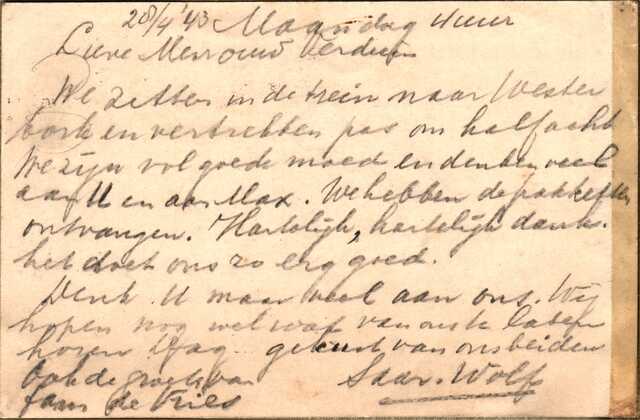 28/4 '43 Maandag 4 uur
Lieve Mevrouw Verduin
We zitten in de trein naar Wester
bork en vertrekken pas om half acht
We zijn vol goede moed en denken veel
aan U en aan Max. We hebben de pakketten
ontvangen. Hartelijk, hartelijk dank.
het doet ons zo erg goed.
Denk U maar veel aan ons. Wij
hopen nog wel wat van ons te laten
horen dag gekust van ons beiden
Ook de groeten van Saar. Wolf
fam de Vries